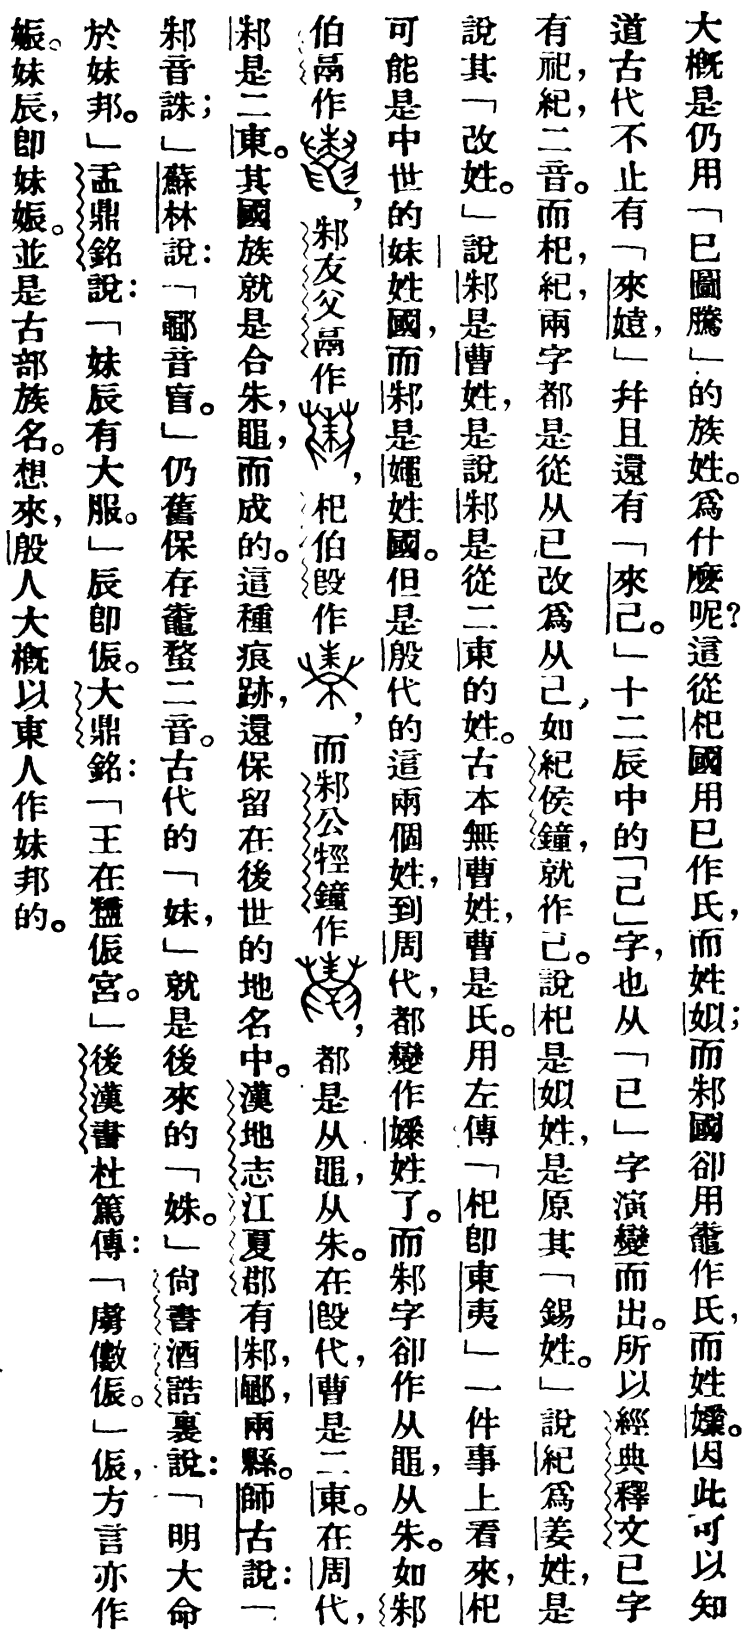 大概是仍用「巳圖騰」的族姓。爲什麽呢?這從杞國用巳作氏,而姓姒;而邾國卻用鼄作氏,而姓㜗。因此可以知
道古代不止有「來嬉,」幷且還有「來己。」十二辰中的「己」字,也从「巳」字演變而出。所以經典釋文已字
有祀,紀,二音。而杞,紀,兩字都是從从巳改爲从己,如紀侯鐘,就作己。說杞是姒姓,是原其「錫姓。」說紀爲姜姓,是
說其「改姓。」說邾是曹姓,是說邾是從二東的姓。古本無曹姓,曹是氏。用左傳「杞卽東夷」一件事上看來,杞
可能是中世的妹姓國,而邾是㜗姓國。但是殷代的這兩個姓,到周代,都變作㜗姓了。而邾字卻作从黽,从朱。如邾
伯鬲作,邾友父鬲作,杞伯毁作,而邾公牼鐘作,都是从黽,从朱。在殷代,曹是二東。在周代,
邾是二東。其國族就是合朱,黽,而成的。這種痕跡,還保留在後世的地名中。漢地志江夏郡有邾,鄳,兩縣。師古說:「
邾音誅;」蘇林說:「鄳音盲。」仍舊保存鼄蝥二音。古代的「妹,」就是後來的「姝。」尙書酒誥裏說:「明大命
於妹邦。」盂鼎銘說:「妹辰有大服。」辰卽侲。大鼎銘:「王在𥂴侲宮。」後漢書杜篤傳:「虜儌侲。」侲,方言亦作
娠。妹辰,卽妹娠。並是古部族名。想來,殷人大概以東人作妹邦的。